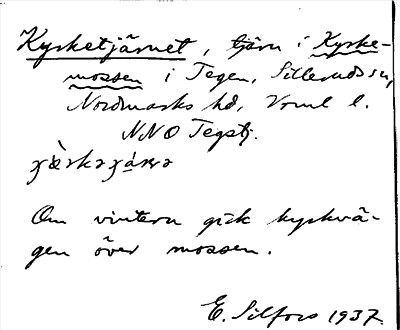 Kyrketjärnet, tjärn i Kyrke-
mossen i Tegen, Sillerudssn,
Nordmarks hd, Vrml l.
NNO Tegstj.
Om vintern gick kyrkvä-
gen över mossen.
E. Silfors 1937.